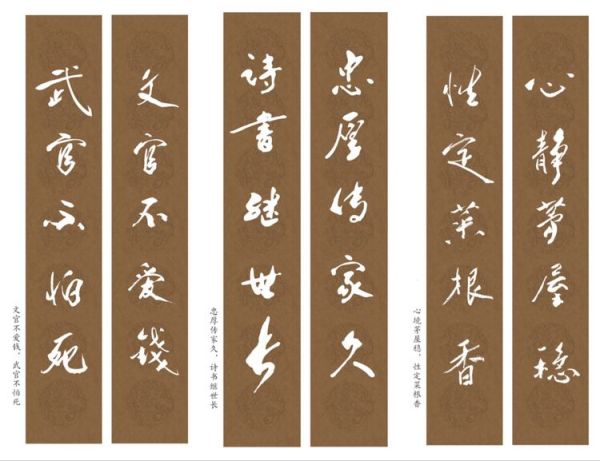 心静茅屋穩
性定菜根香
心境茅屋稳，性定菜根香
忠厚传家久
詩書继世长
忠厚传家久，诗书继世长
文官不爱錢
武官不怕死
文官不爱钱，武官不怕死